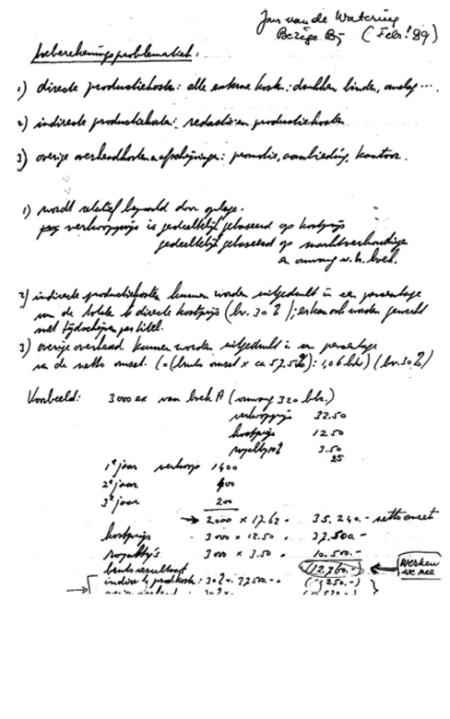 Jan van de Watering
Bezige Bij (Febr. '89)
prijsberekeningsproblematiek.
1) directe productiekosten: alle externe kosten: drukken binden, omslag ...
2) indirecte productiekosten: redactie en productiekosten
3) overige overheadkosten en afschrijvingen: promotie, aanbieding, kantoor.
1) wordt relatief bepaald door oplage.
verkoopprijs is gedeeltelijk gebaseerd op kostprijs
gedeeltelijk gebaseerd op marktverhoudingen
en omvang v.h. boek.
2) indirecte productiekosten kunnen worden uitgedrukt in een percentage
van de totale directe kostprijs (bv. 30%); er kan ook worden gewerkt
met tijdschrijven per titel.
3) overige overhead kunnen worden uitgedrukt in een percentage
van de netto omzet. (= (bruto omzet x ca 57,5%) : 1,06 btw) (bv. 30%)
Voorbeeld: 3000 ex van boek A (omvang 320 blz.)
verkoopprijs 32.50
kostprijs 12.50
royalty 3.50
25
1e jaar verkoop 1400
2e jaar 400
3e jaar 200
→ 2000 x 17.62 = 35.240.- netto omzet
kostprijs 3000 x 12.50 = 37.500.-
royalty's 3000 x 3.50 = 10.500.-
bruto resultaat (12.760.-) ← werken we mee
indirecte prod.kosten: 30% v. 37.500.- (11.250.-)